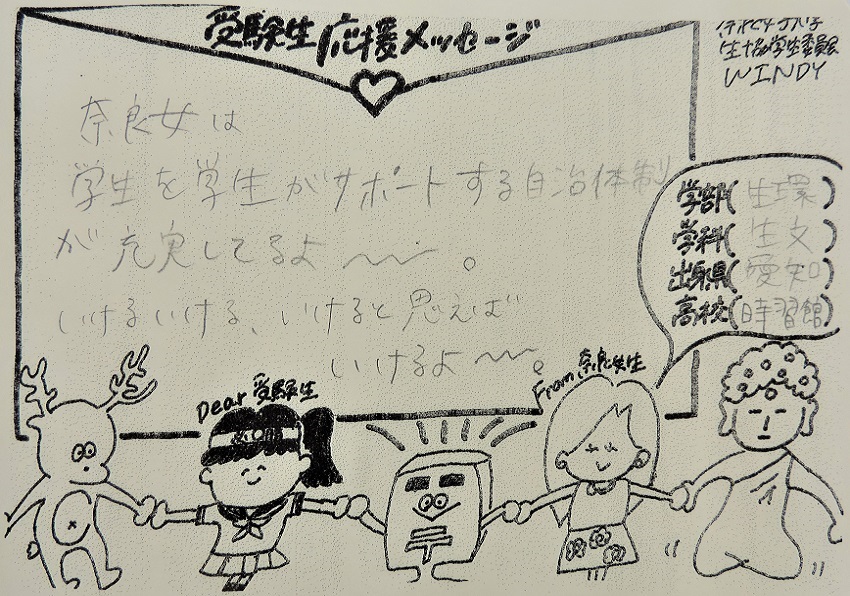 受験生応援メッセージ
生協学生委員会
WINDY
奈良女は
学生を学生がサポートする自治体制
が充実してるよ〜〜。
いけるいける、いけると思えば
いけるよ〜〜。
学部(生環)
学科(生文)
出身県(愛知)
高校(時習館)
Dear 受験生
From 奈良女生
〒